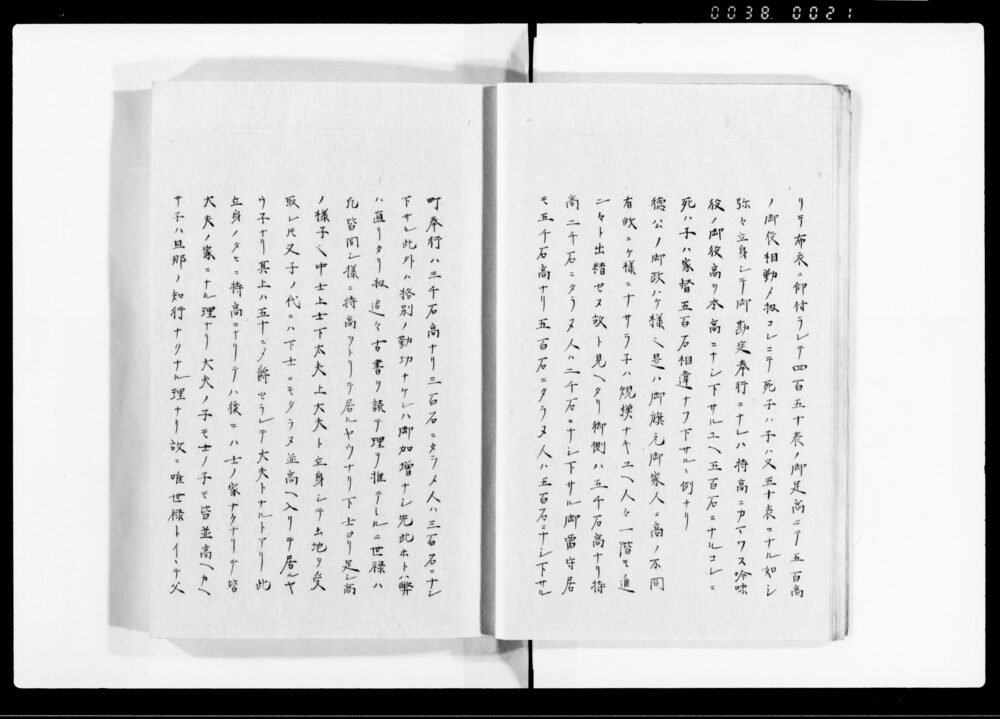 0038 0021
リテ布衣ニ仰付ラレテ四百五十表ノ御足高ニテ五百高
ノ御役相勤メ扨コレニテ死子ハ子ハ又五十表ニナル如シ
弥々立身シテ御勘定奉行ニナレハ持高ニカマワス吟味
役ノ御役高ヲ本高ニナシ下サルユヘ五百石ニナルコレニ
死ハ子ハ家督五百石相違ナフ下サル例ナリ
徳公ノ御政ハケ様ニ是ハ御旗元御家人ニ高ノ不同
有故ニケ様ニナサラ子ハ規摸ナキユヘ人々一階モ進
ニ々ト出精セヌ故ト見ヘタリ御側ハ五千石高ナリ持
高二千石ニタラヌ人ハ二千石ニナシ下サル御留守居
モ五千石高ナリ五百石ニタラヌ人ハ五百石ニナシ下サル
町奉行ハ三千石高ナリ三百石ニタラヌ人ハ三百石ニナシ
下サル此外ハ格別ノ勤功ナケレハ御加増ナシ先此ホトハ弊
ハ直リタリ扨追々古書ヲ読テ理ヲ推テミルニ世禄ハ
凡皆同シ様ニ持高ヲトリテ居ルヤウナリ下士ヨリ足シ高
ノ様子ニ中士上士下大夫上大夫ト立身シテ土地ヲ受
取レ𪜈又子ノ代ニハ下士ニモタラヌ並高ヘ入リテ居ルヤ
ウ子ナリ其上ハ五十ニメ爵セラレテ大夫トナルトアリ此
立身ノタヒニ持高ニナリテハ後ニハ士ノ家ナクナリテ皆
大夫ノ家ニナル理ナリ大夫ノ子モ士ノ子モ皆並高ヘカヘ
サ子ハ旦那ノ知行ナクナル理ナリ故ニ唯世禄トイヽテ父